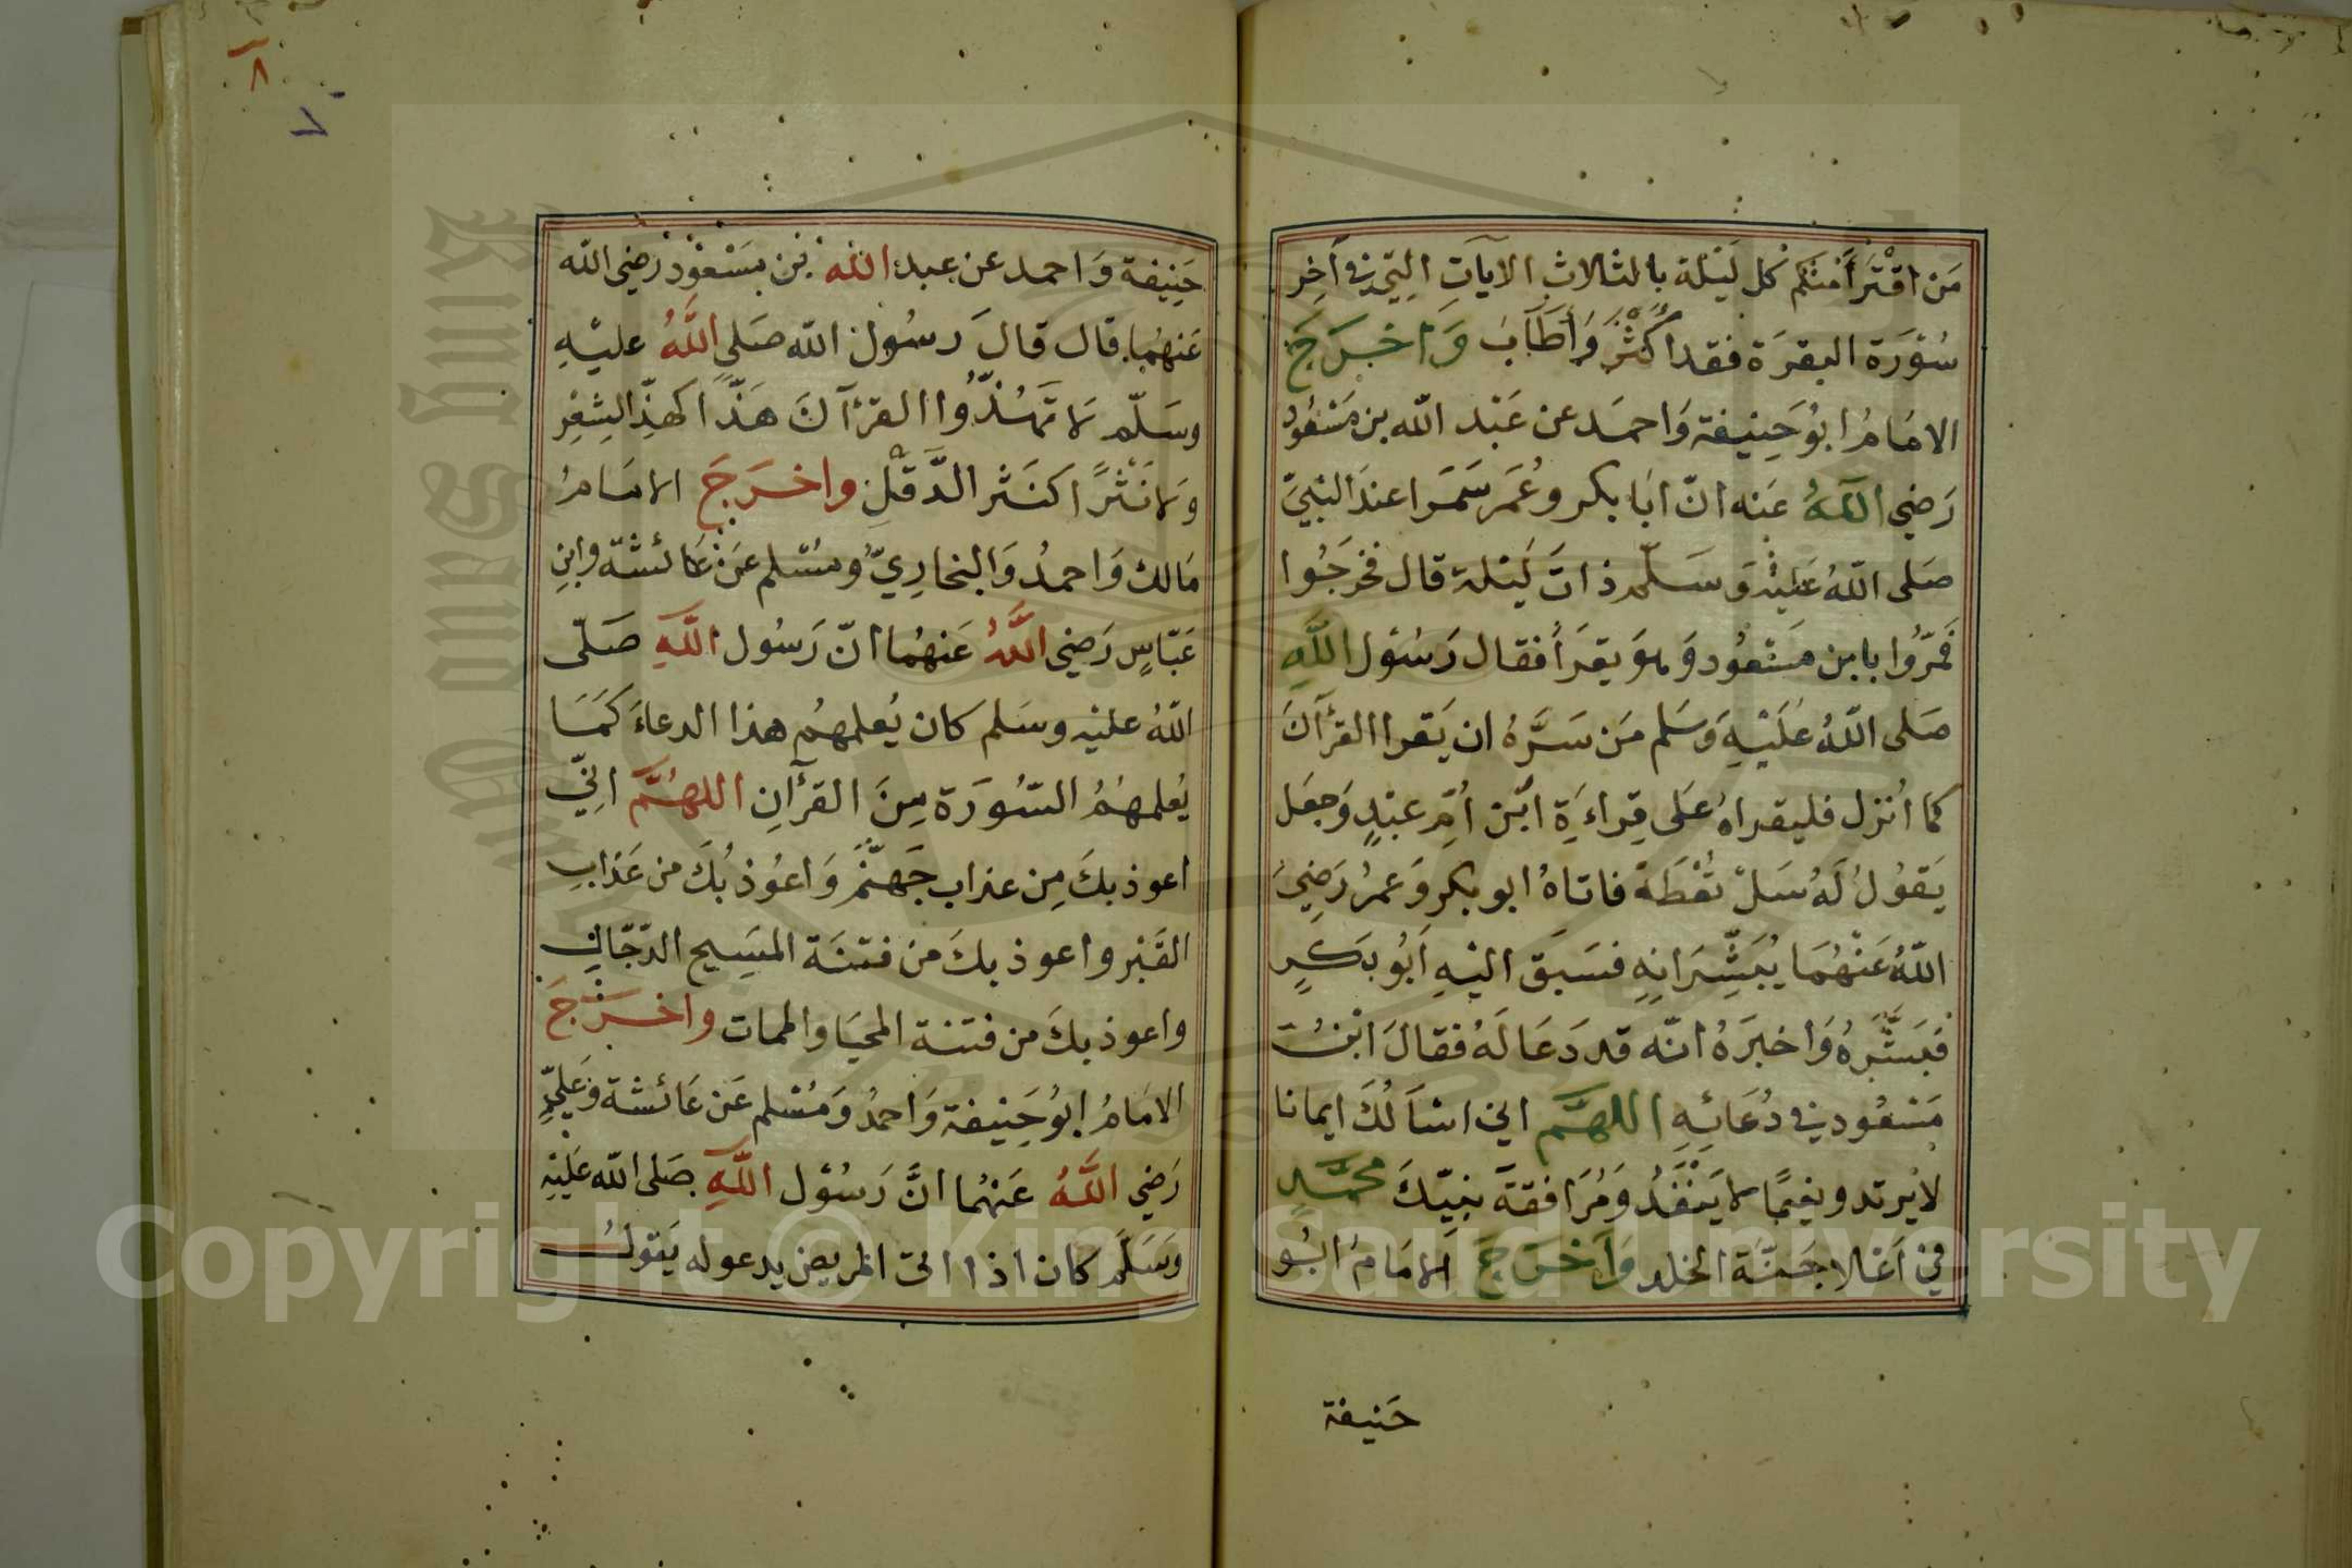 مَن اقْتَرَأَ مِنكم كل لَيْلة بالثلاثِ الآيَاتِ الِتيّ فى آخِر
سُوْرَة البقرَة فقد اكْثَرَ وَأَطَابَ وَاخرَجَ
الامَامُ ابُو حَنِيفة وَاحمَد عن عَبْد الله بن مَسْعُود
رَضي اللهُ عَنه انّ ابَا بكر وعُمَر سَمَرَا عندَ النبيّ
صَلى اللهُ عَليْه وَسَلّم ذاتَ لَيْلة قال فخرجُوا
فَمَرّوا بابن مسْعُود وَهوَ يقرَأ فقال رَسُوْل اللَّهِ
صَلى اللهُ عَلَيْهِ وَسَلم مَن سَرَّهُ ان يَقرا القرْآنَ
كما اُنزل فليقراهُ عَلى قِراءَةِ ابْن اُمِّ عبْدٍ وَجعَل
يَقوُلُ لَهُ سَلْ تُعْطَهْ فاتاهُ ابو بكر وَعمرُ رَضِيَ
اللهُ عَنْهُمَا يُبَشِّرَانِهِ فسَبَقَ اليْهِ اَبُو بَكرٍ
فبَشَّرَهُ وَاخبَرَهُ انّه قد دَعَا لَهُ فقالَ ابْنُ
مَسْعُود فى دُعَائِهِ اللهُمَّ اني اسْاَلُكَ ايمانا
لا يرتد ونعِيمًا لا يَنْفَدُ وَمُرَافقةَ نبِيّكَ محمَّدٍ
في اَعْلا جَنَّة الخلد وَاَخرَجَ الامَامُ ابُو
حَنيفة
٨
٧
حَنِيفة وَاحمد عن عبد الله بْن مسْعُوْد رَضي الله
عَنهُمَا قال قالَ رسُول الله صَلى اللَّهُ عليْهِ
وسَلّم لا تَهُذّوا القرْآنَ هَذّاً كهَذِّ الشِعْرِ
وَلا نَثْرًا كنَثْر الدَّقَلِ واخرَجَ الامَامُ
مَالك وَاحمدُ وَالبخارِيّ وَمُسْلم عَن عَائشة وابنِ
عَبّاسٍ رَضي اللَّهُ عَنهُما انّ رَسُول اللَّهِ صَلّى
اللهُ عليْه وسَلم كان يُعلمهُم هذا الدعاءَ كَمَا
يُعلمهُمُ السُّورَة مِنَ القرْآنِ اللهُمَّ اِنِّي
اعوذ بكَ مِن عذاب جَهنَّمَ وَاعُوذ بُكَ من عَذابِ
القَبْر واعوذ بكَ من فتنَة المَسِيح الدّجّال
واعوذ بكَ من فتنة المحيَا والممات واخرَجَ
الامَامُ ابُو حَنِيفة وَاحمدُ وَمُسْلم عَن عَائشة وَعَليٍّ
رَضي اللَّهُ عَنهُما انَّ رَسُوْل اللَّهِ صَلى الله عَليْهِ
وَسَلَّم كان اذا اتى المريض يدعو له يَقولُ
Copyright © King Saud University